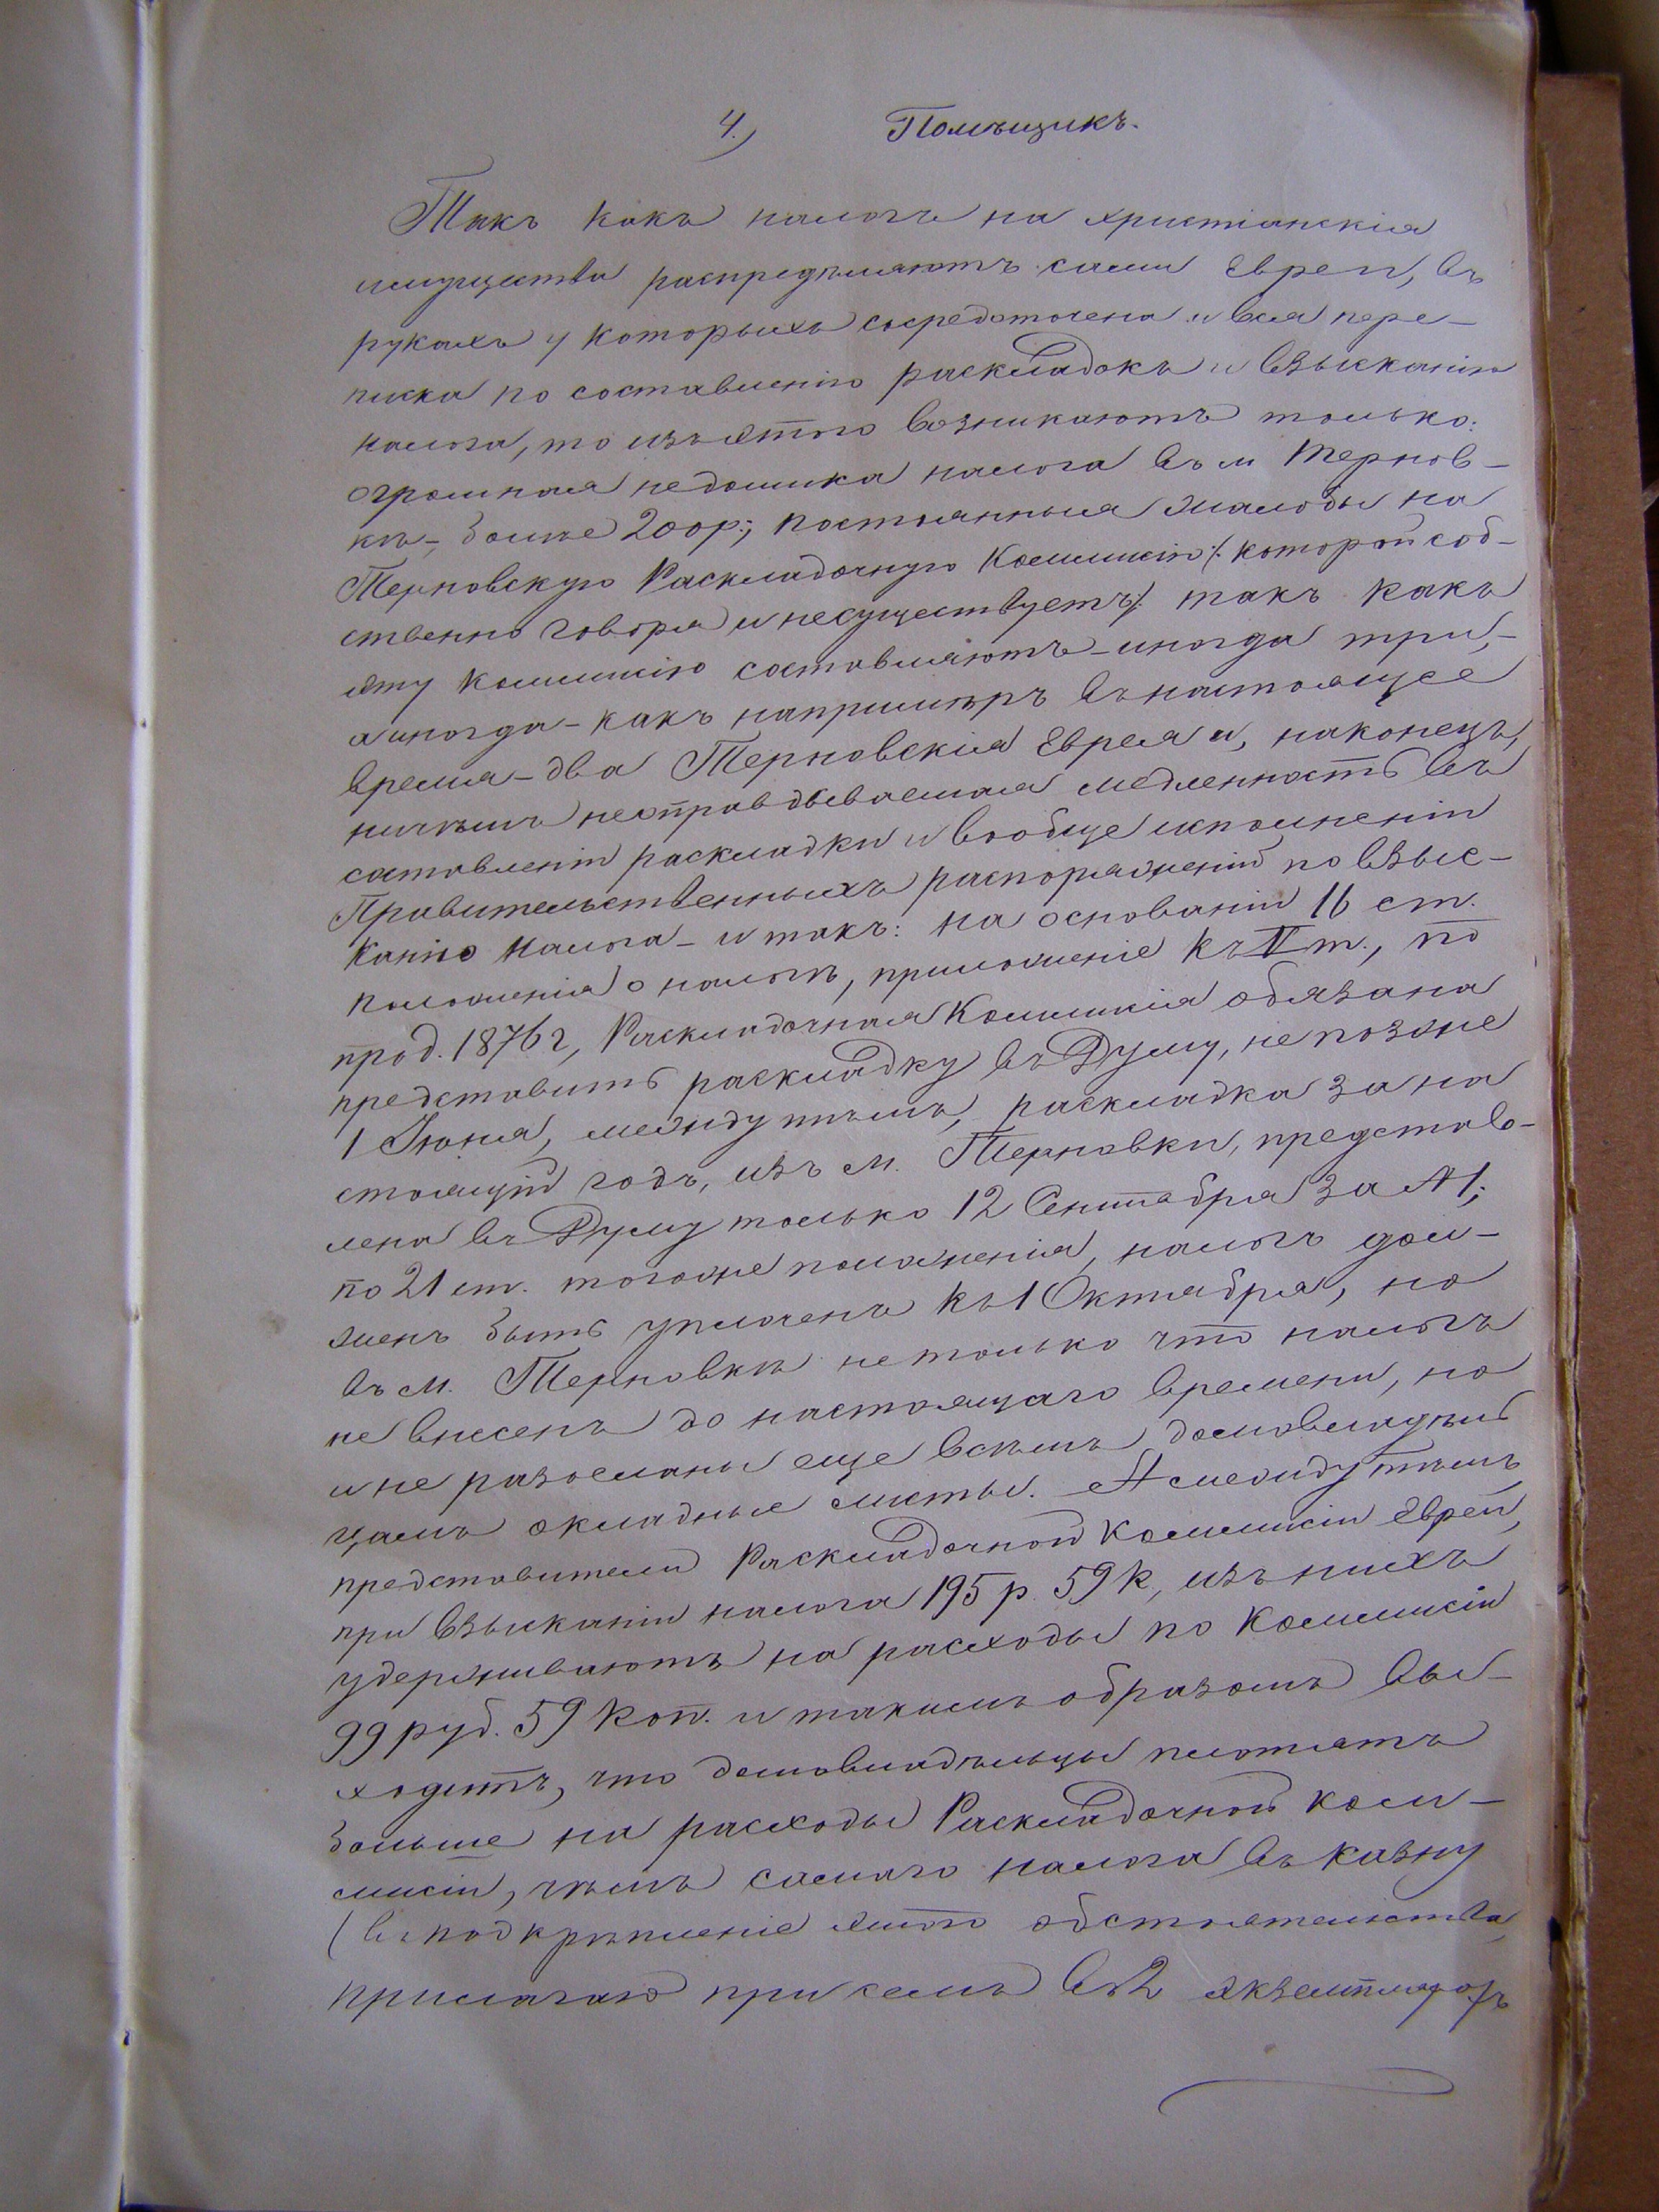 4.) Помѣщикъ.
Такъ какъ налогъ на христіанскія
имущества распредѣляютъ сами Евреи, въ
рукахъ у которыхъ сосредоточена и вся пере-
писка по составленію раскладокъ и взысканію
налога, то изъ этого возникаютъ только:
огромная недоимка налога въ м Тернов-
кѣ, болѣе 200р; постоянныя жалобы на
Терновскую Раскладочную Коммисію /: которой соб-
ственно говоря и несуществуетъ :/ такъ какъ
эту коммисію составляютъ - иногда три,-
а иногда - какъ напримѣръ въ настоящее
время - два Терновскія Еврея и, наконецъ,
ничѣмъ неоправдываемая медленность въ
составленіи раскладки и вообще исполненіи
Правительственныхъ распоряженій по взыс-
канію налога - и такъ: на основаніи 16 ст.
положенія о налогѣ, приложеніе къ V т., по
прод. 1876 г, Раскладочная Коммисія обязана
представить раскладку въ Думу, не позже
1 Іюня, между тѣмъ, раскладка за на
стоящій годъ, изъ м. Терновки, представ-
лена въ Думу только 12 Сентября за № 1;
по 21 ст. того же положенія, налогъ дол-
женъ быть уплоченъ къ 1 Октября, но
въ м. Терновкѣ не только что налогъ
не внесенъ до настоящаго времени, но
и не разосланы еще всѣмъ домовладѣль
цамъ окладные листы. А между тѣмъ
представители Раскладочной Коммисіи Евреи,
при взысканіи налога 195 р. 59 к, изъ нихъ
удерживаютъ на расходы по Коммисіи
99 руб. 59 коп. и такимъ образомъ вы-
ходитъ, что домовладѣльцы платятъ
больше на расходы Раскладочной ком-
мисіи, чѣмъ самаго налога въ казну
(въ подкрѣпленіе этого обстоятельства,
прилагаю при семъ въ 2 экземплярахъ